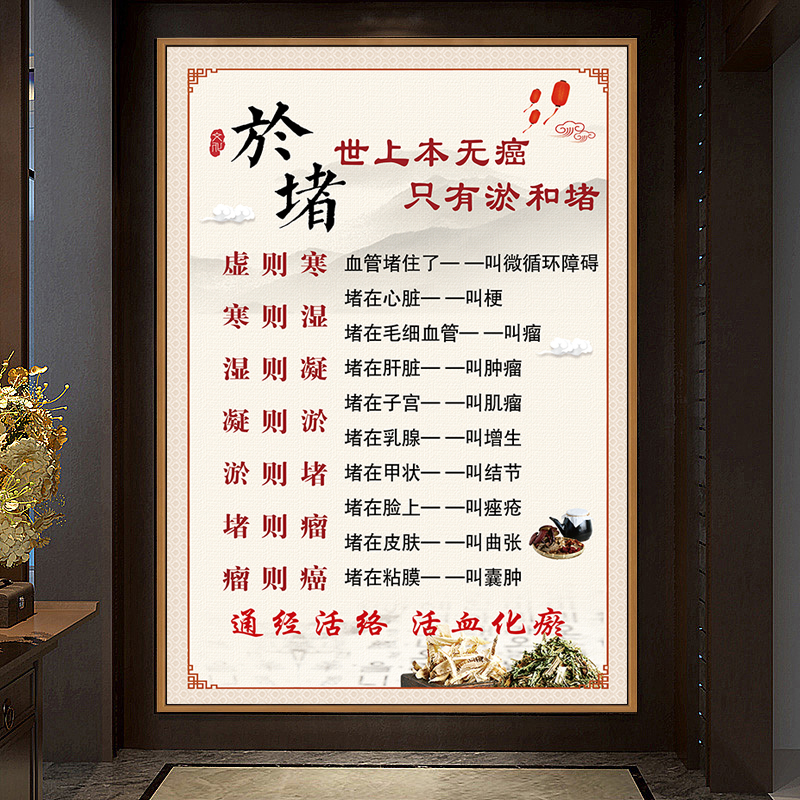 於堵
世上本无癌
只有淤和堵
虚则寒
寒则湿
湿则凝
凝则淤
淤则堵
堵则瘤
瘤则癌
血管堵住了——叫微循环障碍
堵在心脏——叫梗
堵在毛细血管——叫瘤
堵在肝脏——叫肿瘤
堵在子宫——叫肌瘤
堵在乳腺——叫增生
堵在甲状——叫结节
堵在脸上——叫痤疮
堵在皮肤——叫曲张
堵在粘膜——叫囊肿
通经活络 活血化瘀